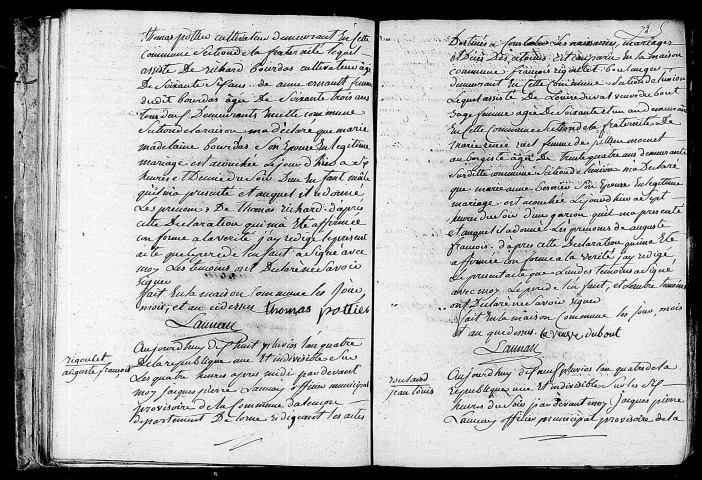 thomas pottier cultivateur demeurant En cette
commune section de la fraternité lequel
assisté de richard bourdas cultivateur âgé
De soixante six ans, de anne ernault femme
dudit bourdas âgée de soixante trois ans
tous deux Demeurants en cette commune
section de la raison ma declaré que marie
madelaine bourdas son Epouse En legitime
mariage est acouchée Le jour d'hier a
heures et Demie du soir D'un Enfant mâle
quil ma presenté et auquel il a donné
Les prenoms De thomas richard. d'après
cette Declaration qui m'a Eté affirmée
conforme a la verité j'ay redigé le present
acte que le pere de l'enfant a signé avec
moy Les temoins ont Declaré ne savoir
signer
fait En la maison Commune Les Jour
mois, et an cidessus thomas pottier
Launay
rigoulet
auguste françois
Aujourdhuy huit pluviose l'an quatre
De la republique une Et indivisible sur
Les quatre heures après midi par devant
moy Jacques pierre Launay officier municipal
provisoire de la Commune d'alençon
departement De L'orne redigeant les actes
73
Destinés a constater Les naissances, mariages
et Décès Des citoiens. est comparu En la maison
commune françois rigoulet boulanger
demeurant En Cette Commune section de l'union
Lequel assisté De Louise duval veuve dubout
sage femme agée De soixante et un an demeurante
En cette Commune section de la fraternité De
marie renée ruel femme de pelten monet
aubergiste âgée De trente quatre ans demeurante
Susditte commune section de l'union ma Declaré
que marie anne bernier son Epouse En legitime
mariage est acouchée Le jourdhier a sept
heures du soir d'un garçon quil ma presenté
et auquel il a donné Les prénoms de auguste
françois. d'apres cette Declaration qui ma Eté
affirmée conforme a la verité j'ay redigé
Le present acte que L'un des temoins a signé
avec moy. Le pere de l'enfant, et L'autre temoin
ont declaré ne savoir signer
fait En la maison Commune les jour, mois
et an que dessus. la veuve dubout
Launay
roulard
jean Louis
Aujourdhuy neuf pluviose l'an quatre de la
republique une Et indivisible sur les six
heures du soir par devant moy Jacques pierre
Launay officier municipal provisoire de la